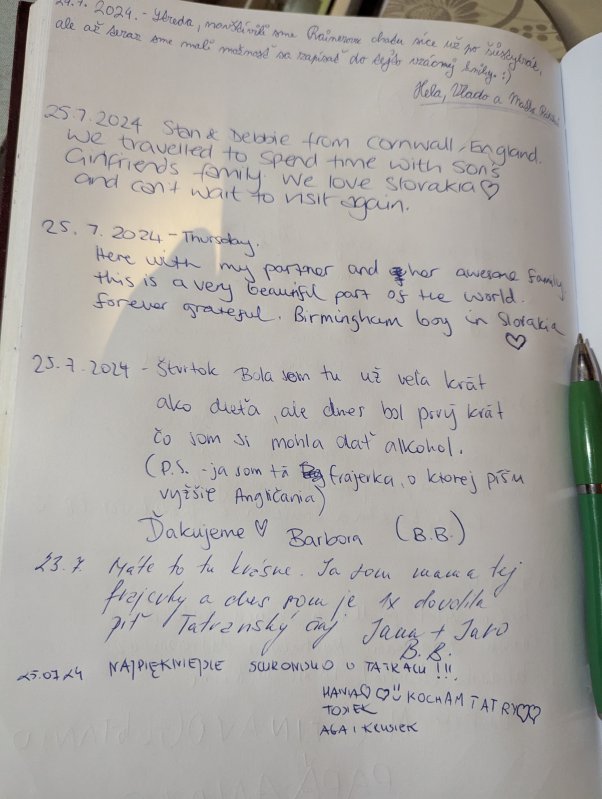 24.7.2024. - Streda, navštívili sme Rainerovu chatu síce už po
ale až teraz sme mali možnosť sa zapísať do tejto vzácnej knihy :)
Hela, Vlado a
25.7.2024 Stan & Debbie from Cornwall, England.
We travelled to spend time with son's
Girlfriends family. We love Slovakia ♡
and can't wait to visit again.
25.7.2024 - Thursday.
Here with my partner and her awesome family
this is a very beautiful part of the world.
forever grateful. Birmingham boy in Slovakia
♡
25.7.2024 - Štvrtok Bola som tu už veľa krát
ako dieťa, ale dnes bol prvý krát
čo som si mohla dať alkohol.
(P.S. - ja som tá frajerka, o ktorej píšu
vyžšie Angličania)
Ďakujeme ♡ Barbora (B.B.)
23.7 Máte to tu krásne. Ja som mama tej
frajerky a dnes som je 1x dovolila
piť Tatranský čaj Jana + Jaro
B.B.
25.07.24 NAJPIĘKNIEJSIE SCHRONISKO W TATRACH !!!
HANIA ♡♡ KOCHAM TATRY ♡♡
TOJEK
AGA I